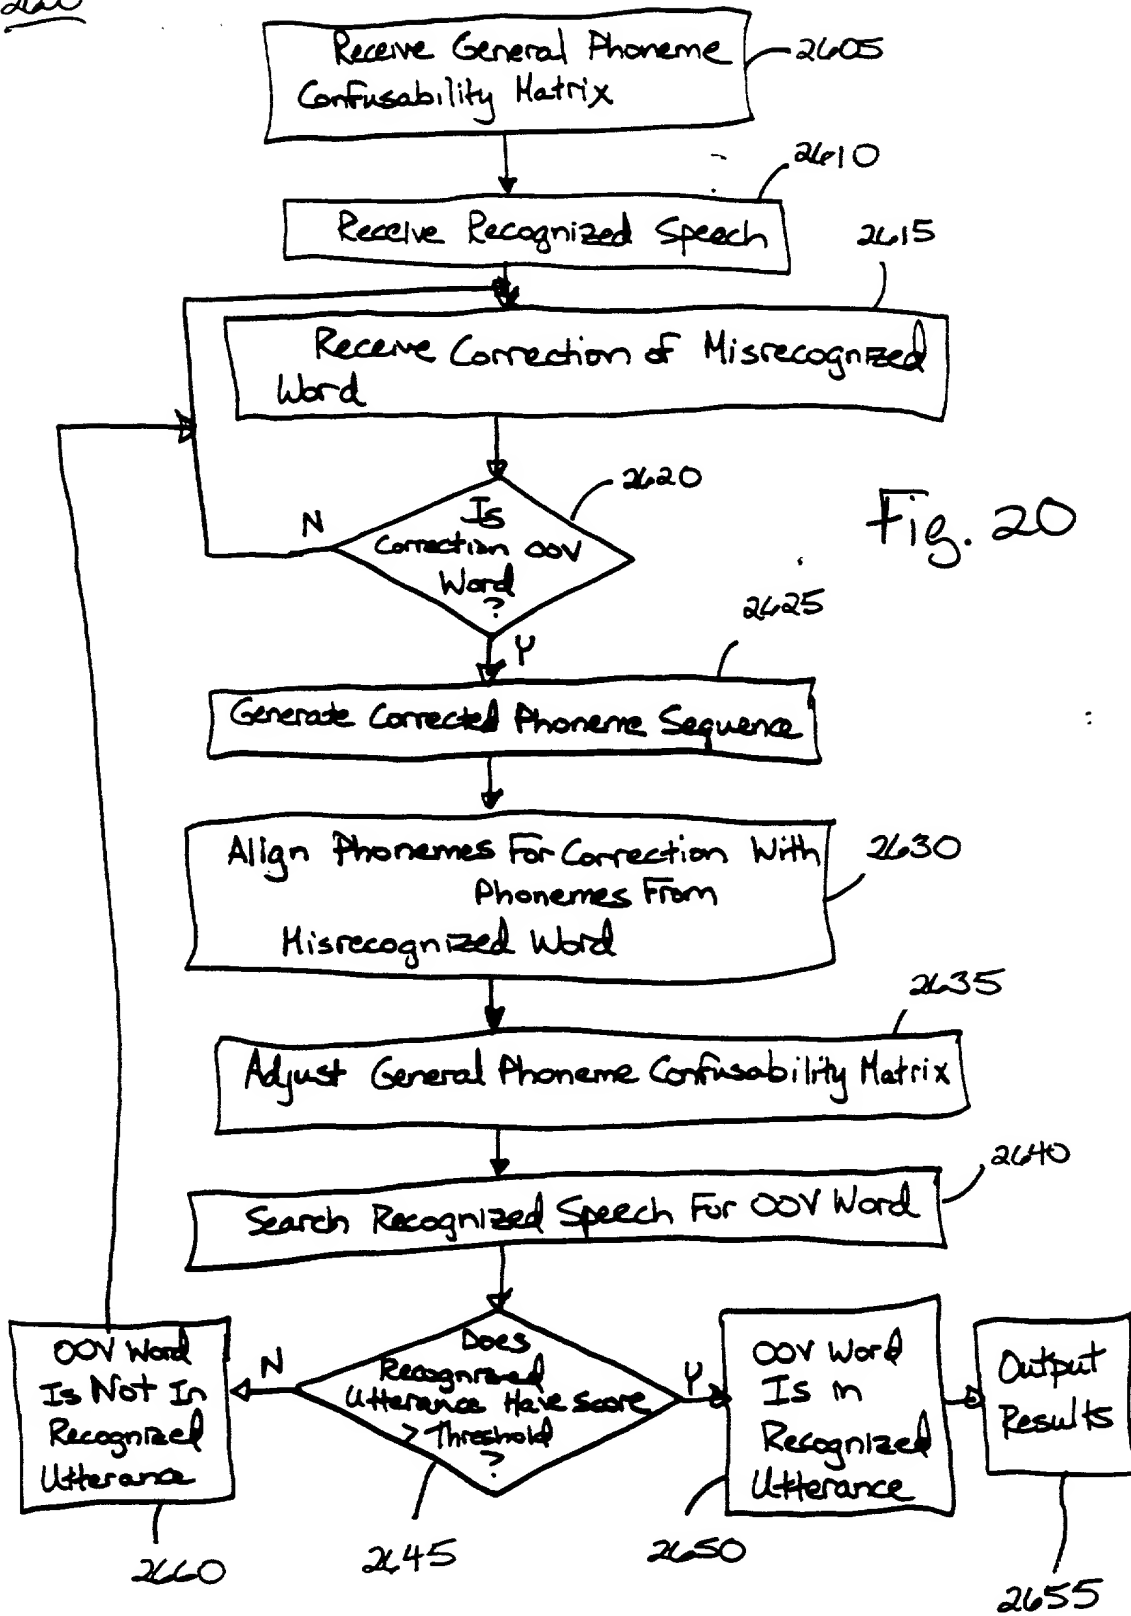 Receive General Phoneme
Confusability Matrix
2605
2610
Receive Recognized Speech
2615
Receive Correction of Misrecognized
Word
2620
Is
Correction OOV
Word
?
N
Y
Fig. 20
2625
Generate Corrected Phoneme Sequence
Align Phonemes For Correction With
Phonemes From
Misrecognized Word
2630
2635
Adjust General Phoneme Confusability Matrix
2640
Search Recognized Speech For OOV Word
OOV Word
Is Not In
Recognized
Utterance
N
Does
Recognized
Utterance Have Score
> Threshold
?
Y
OOV Word
Is in
Recognized
Utterance
Output
Results
2660
2645
2650
2655